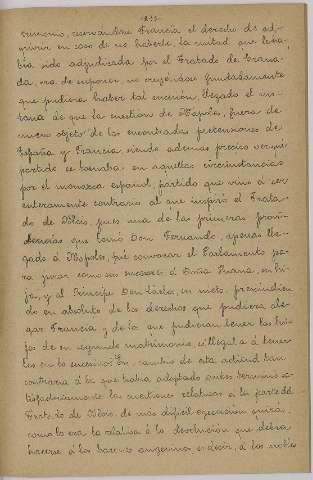 -213-
trimonio, reservándose Francia el derecho de ad-
quirir en caso de no haberlo, la mitad que le ha-
bía sido adjudicada por el Tratado de Grana-
da, era de suponer, no creyéndose fundadamente
que pudiera haber tal sucesión, llegado el
de que la cuestión de Nápoles, fuera de
nuevo objeto de las encontradas pretensiones de
España y Francia, siendo además preciso ver qué
partido se tomaba en aquellas circunstancias
por el monarca español, partido que vino á ser
enteramente contrario al que inspiró el Trata-
do de Blois, pues una de las primeras provi-
dencias que tomó Don Fernando, apenas lle-
gado á Nápoles, fué convocar el Parlamento pa-
ra jurar como sus sucesores á Doña Juana, su hi-
ja, y al Príncipe Don Carlos, su nieto, prescindien-
do en absoluto de los derechos que pudiera ale-
gar Francia y de los que pudieran tener los hi-
jos de su segundo matrimonio, si llegaba á tener-
los en lo sucesivo. En cambio de esta actitud tan
contraria á la que había adoptado antes, terminó sa-
tisfactoriamente las cuestiones relativas á la parte del
Tratado de Blois, de más difícil ejecución quizá,
como lo era la relativa á la devolución que debía
hacerse á los barones angevinos es decir, á los nobles